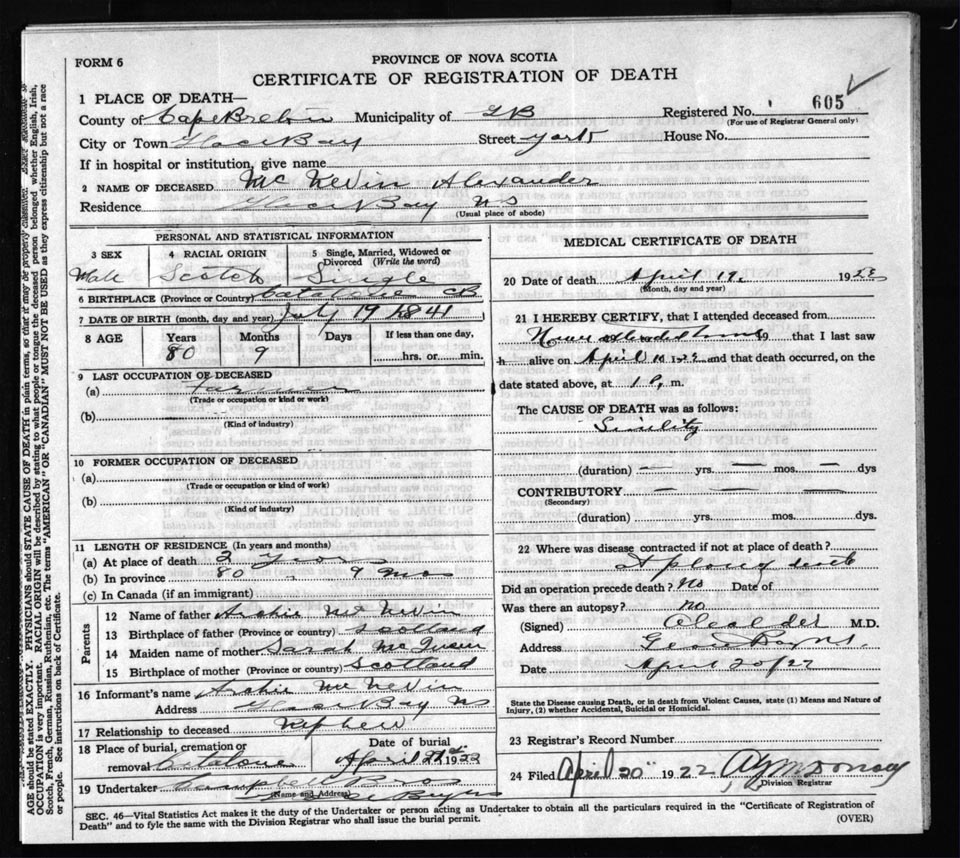 FORM 6
PROVINCE OF NOVA SCOTIA
CERTIFICATE OF REGISTRATION OF DEATH
1 PLACE OF DEATH—
County of Cape Breton Municipality of GB Registered No. 605
(For use of Registrar General only)
City or Town Glace Bay Street York House No.
If in hospital or institution, give name
2 NAME OF DECEASED McNevin Alexander
Residence Glace Bay NS
(Usual place of abode)
PERSONAL AND STATISTICAL INFORMATION
3 SEX 4 RACIAL ORIGIN 5 Single, Married, Widowed or Divorced (Write the word)
Male Scotch Single
6 BIRTHPLACE (Province or Country) Catalone CB
7 DATE OF BIRTH (month, day and year) July 19 1841
8 AGE Years Months Days If less than one day,
80 9 hrs. or min.
9 LAST OCCUPATION OF DECEASED
(a) Farmer
(Trade or occupation or kind or work)
(b)
(Kind of industry)
10 FORMER OCCUPATION OF DECEASED
(a)
(Trade or occupation or kind of work)
(b)
(Kind of industry)
11 LENGTH OF RESIDENCE (In years and months)
(a) At place of death 2 yrs
(b) In province 80 - 9 mos
(c) In Canada (if an immigrant)
Parents
12 Name of father Archie McNevin
13 Birthplace of father (Province or country) Scotland
14 Maiden name of mother Sarah
15 Birthplace of mother (Province or country) Scotland
16 Informant's name Archie McNevin
Address Glace Bay NS
17 Relationship to deceased Nephew
18 Place of burial, cremation or removal Catalone Date of burial April 1922
19 Undertaker Bros
(Name and Address)
MEDICAL CERTIFICATE OF DEATH
20 Date of death April 19, 192
(Month, day and year)
21 I HEREBY CERTIFY, that I attended deceased from
19 that I last saw
h alive on April 10 and that death occurred, on the
date stated above, at 1 P. m.
The CAUSE OF DEATH was as follows:
Senility
(duration) — yrs. — mos. — dys
CONTRIBUTORY — — —
(Secondary)
(duration) yrs. mos. dys.
22 Where was disease contracted if not at place of death?
At place of death
Did an operation precede death? No Date of
Was there an autopsy? no
(Signed) M.D.
Address Glace Bay NS.
Date April 20/22
State the Disease causing Death, or in death from Violent Causes, state (1) Means and Nature of
Injury, (2) whether Accidental, Suicidal or Homicidal.
23 Registrar's Record Number
24 Filed April 20" 1922
Division Registrar
SEC. 46—Vital Statistics Act makes it the duty of the Undertaker or person acting as Undertaker to obtain all the particulars required in the "Certificate of Registration of
Death" and to fyle the same with the Division Registrar who shall issue the burial permit. (OVER)
AGE should be stated EXACTLY. PHYSICIANS should STATE CAUSE OF DEATH in plain terms, so that it may be properly classified. Exact statement of
OCCUPATION is very important. RACIAL ORIGIN will be described by stating to what people or tongue the deceased person belonged whether English, Irish,
Scotch, French, German, Russian, Ruthenian, etc. The terms "AMERICAN" OR "CANADIAN" MUST NOT BE USED as they express citizenship but not a race
or people. See instructions on back of Certificate.